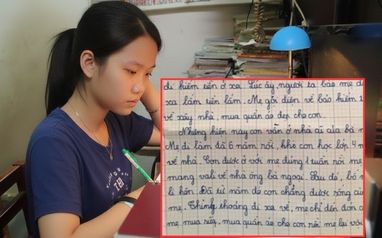 đi kiếm tiền ở xa. Lúc ấy, người ta bảo mẹ đ
xa làm tiền lắm. Mẹ gọi điện về bảo kiếm
về xây nhà, mua quần áo đẹp cho con.
Những hiện nay con vẫn ở nhà cũ của bà n
Mẹ đi làm đã 6 năm rồi, khi con học lớp 4
về nhà. Con được ở với mẹ đúng 1 tuần rồi mẹ
mang vali về nhà ông bà ngoại. Sau đó, bố
li hôn. Đã từ năm đó con chẳng được sống
mẹ. Thỉnh thoảng đi xa về, mẹ chỉ đến đón c
mẹ mua giày, mua quần áo cho con rồi mẹ lại vội